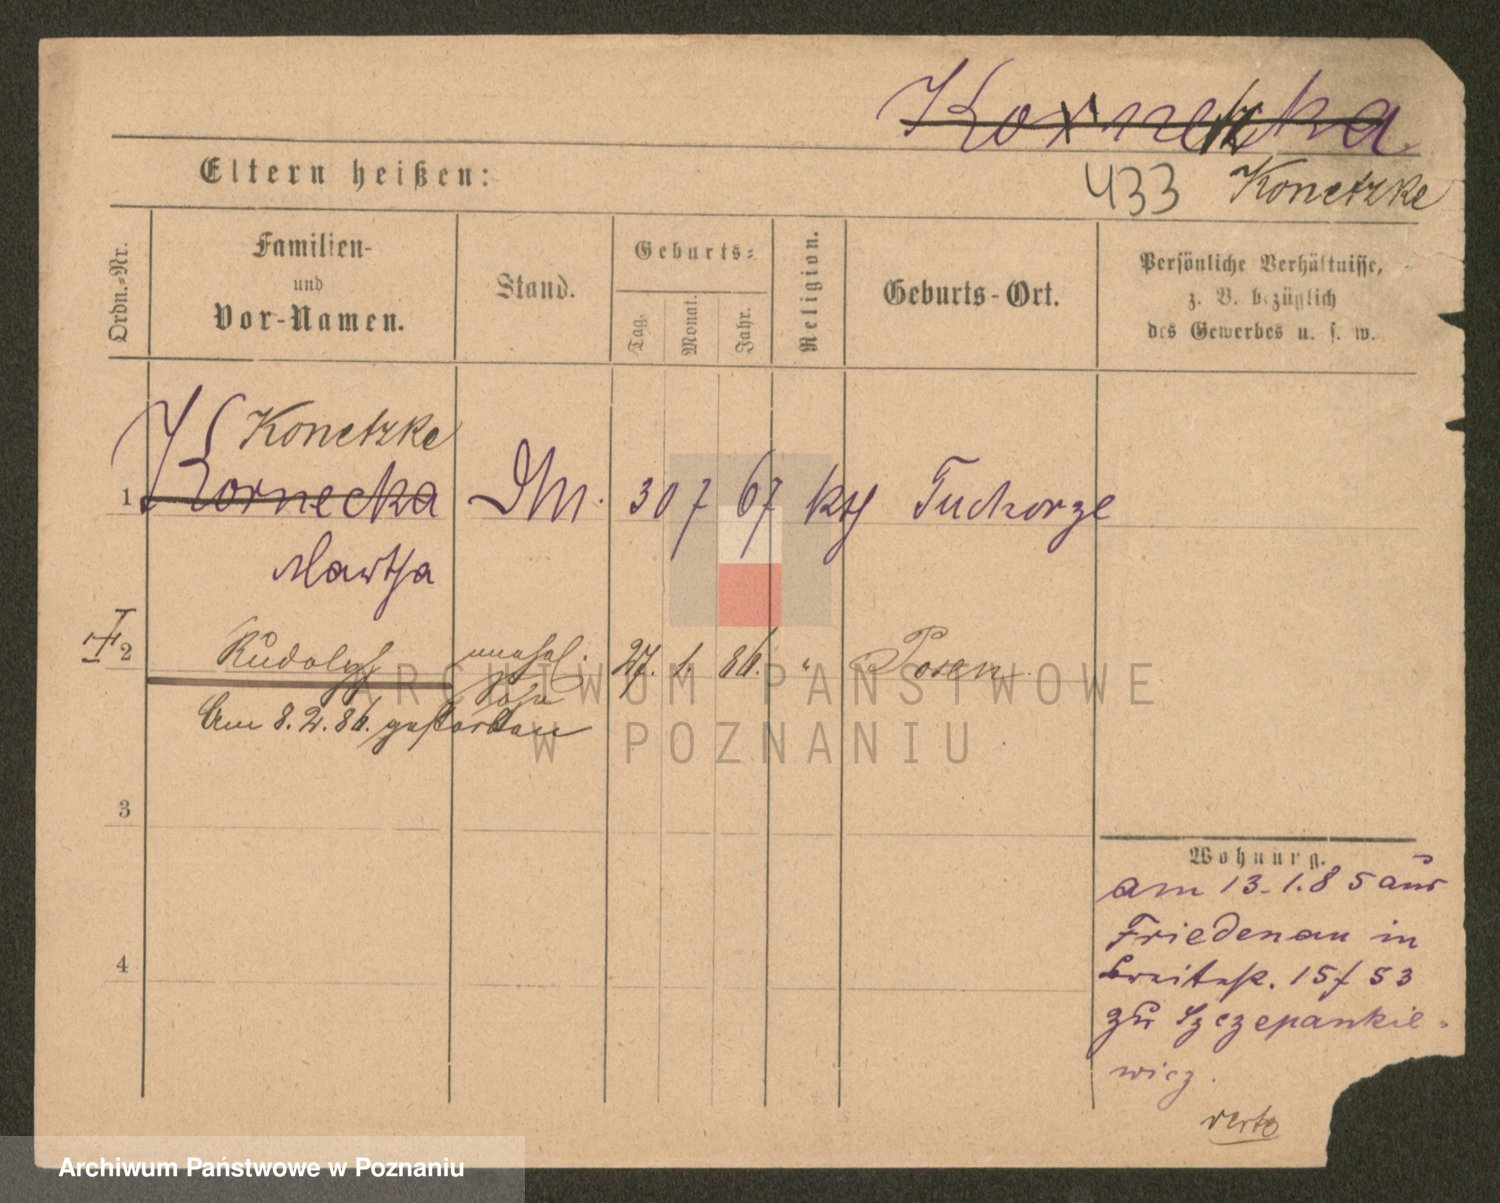 Kornecka
433 Konetzke
Eltern heißen:
Ordn.-Nr.
Familien-
und
Vor-Namen.
Stand.
Geburts-
Tag.
Monat.
Jahr.
Religion.
Geburts-Ort.
Persönliche Verhältnisse,
z. B. bezüglich
des Gewerbes u. s. w.
Konetzke
1 Kornecka 30 7 67 kth Tuchorze
Martha
2 Rudolph unehel. 27. 1. 86. " Posen
Sohn
Am 8.2.86. gestorben
3
4
Wohnung.
am 13.1.85 aus
Friedenau in
Breitestr. 15/53
zu Szczepankie-
wicz.
verto
ARCHIWUM PAŃSTWOWE
W POZNANIU
Archiwum Państwowe w Poznaniu